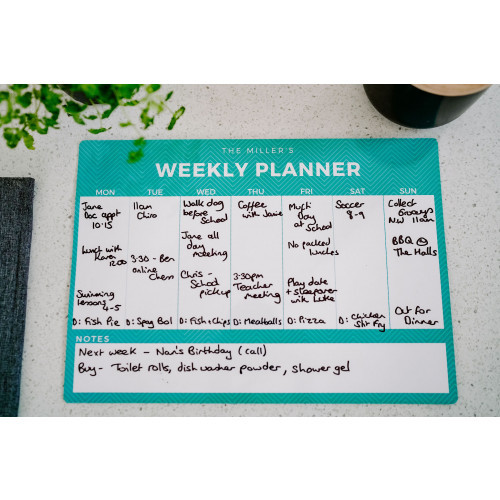 THE MILLER'S
WEEKLY PLANNER
MON TUE WED THU FRI SAT SUN
Jane
Doc appt
10.15
Lunch with
Karen
12.00
Swimming
lessons
4-5
D: Fish Pie
11am
Chiro
3:30 - Ben
online
Chess
D: Spag Bol
Walk dog
before
School
Jane all
day
meeting
Chris -
School
pickup
D: Fish + Chips
Coffee
with Janie
3:30pm
Teacher
meeting
D: Meatballs
Mufti
Day
at School
No packed
lunches
Play date
+ sleepover
with Luke
D: Pizza
Soccer
8-9
D: Chicken
Stir Fry
Collect
11am
BBQ @
The Halls
Out For
Dinner
NOTES
Next week - Nan's Birthday (call)
Buy - Toilet rolls, dishwasher powder, shower gel